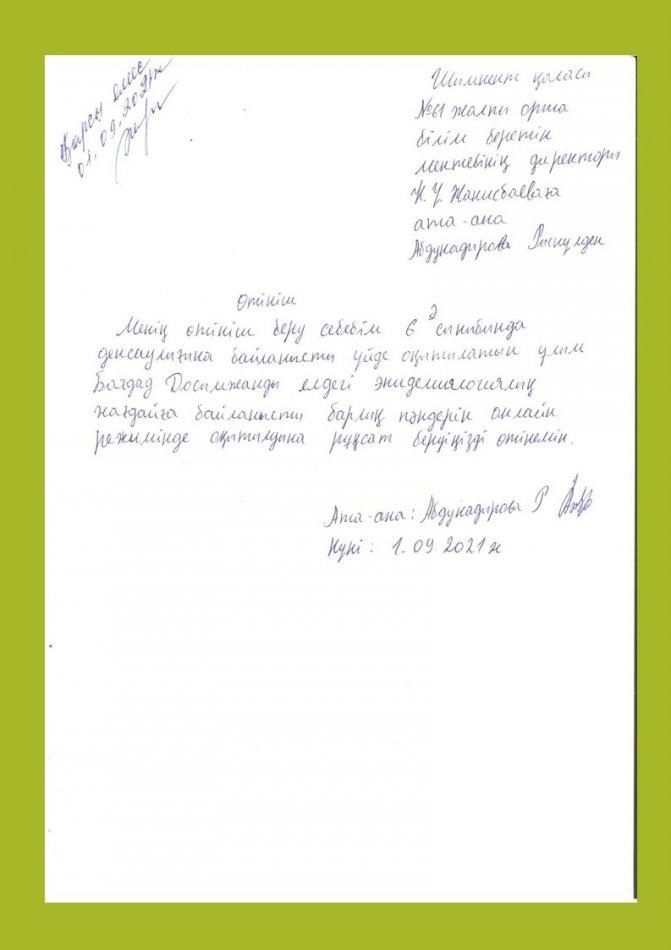 Қарсы емес
01.09.2021ж
Шымкент қаласы
№61 жалпы орта
білім беретін
мектебінің директоры
К.У. Жанисбаеваға
ата-ана
Абдукадирова
Өтініш
Менің өтініш беру себебім 6 "з" сыныбында
денсаулығына байланысты үйде оқытылатын ұлым
Бағдад Досымжанды елдегі эпидемиялогиялық
жағдайға байланысты барлық пәндерін онлайн
режимінде оқытылуына рұқсат беруіңізді өтінемін.
Ата-ана: Абдукадирова Р
Күні: 1.09.2021ж